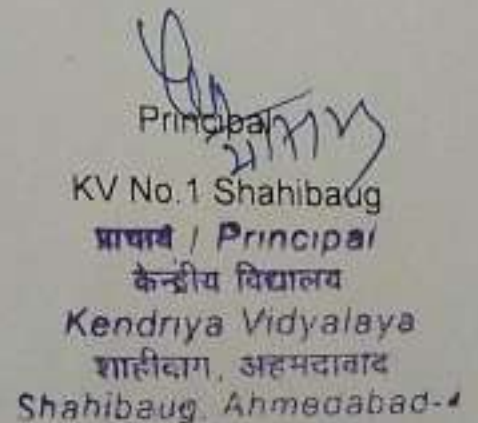 Principal
KV No.1 Shahibaug
प्राचार्य / Principal
केन्द्रीय विद्यालय
Kendriya Vidyalaya
शाहीबाग, अहमदाबाद
Shahibaug, Ahmedabad-4